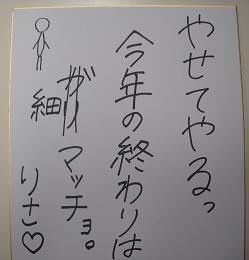 やせてやるっ
今年の終わりは
ガリマッチョ。
細
りさ♡